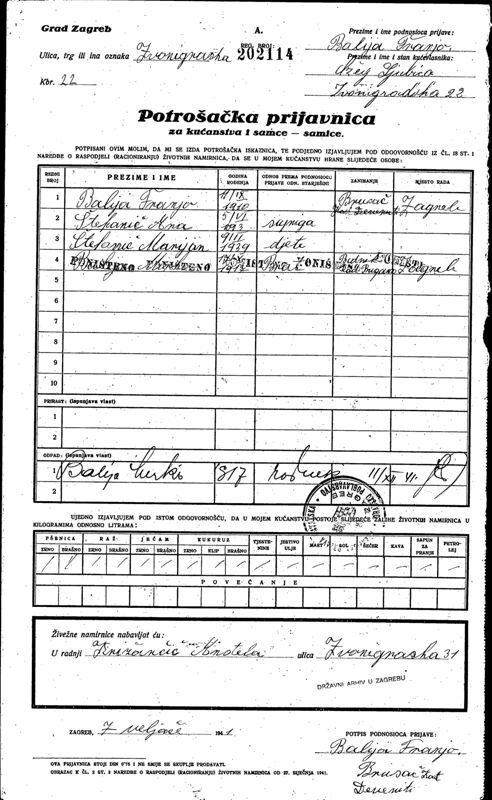 Grad Zagreb
A.
Prezime i ime podnosioca prijave:
Balija Franjo
Ulica, trg ili ina oznaka Zvonigraska REG. BROJ: 202114
Prezime i ime i stan kućevlasnika:
Ljubica
Kbr. 22
Zvonigradska 22
Potrošačka prijavnica
za kućanstva i samce – samice.
POTPISANI OVIM MOLIM, DA MI SE IZDA POTROŠAČKA ISKAZNICA, TE PODJEDNO IZJAVLJUJEM POD ODGOVORNOŠĆU IZ ČL. 18 ST. 1
NAREDBE O RASPODJELI (RACIONIRANJU) ŽIVOTNIH NAMIRNICA, DA SE U MOJEM KUĆANSTVU HRANE SLIJEDEĆE OSOBE:
REDNI BROJ PREZIME I IME GODINA ROĐENJA ODNOS PREMA PODNOSIOCU PRIJAVE ODN. STARJEŠINI ZANIMANJE MJESTO RADA
1 Balija Franjo 11/IX 1910 Brusač Zagreb
2 Štefanić Ana 5/VI 193 supruga
3 Štefanić Marijan 9/I 1939 djete
4 PONIŠTENO PONIŠTENO Brat Zagreb
5
6
7
8
9
10
PRIRAST: (ispunjava vlast)
1
2
OTPAD: (ispunjava vlast)
1 Balija 817 11/XII 41.
2
UJEDNO IZJAVLJUJEM POD ISTOM ODGOVORNOŠĆU, DA U MOJEM KUĆANSTVU POSTOJE SLIJEDEĆE ZALIHE ŽIVOTNIH NAMIRNICA U
KILOGRAMIMA ODNOSNO LITRAMA:
PŠENICA RAŽ JEČAM KUKURUZ TJESTENINE JESTIVO ULJE MAST SOL ŠEĆER KAVA SAPUN ZA PRANJE PETROLEJ
ZRNO BRAŠNO ZRNO BRAŠNO ZRNO BRAŠNO ZRNO KLIP BRAŠNO
POVEĆANJE
Živežne namirnice nabavljat ću:
U radnji Križančić Anstela ulica Zvonigraska 31
DRŽAVNI ARHIV U ZAGREBU
ZAGREB, 7 veljače 194
POTPIS PODNOSIOCA PRIJAVE:
Balija Franjo
Brusač
OVA PRIJAVNICA STOJI DIN 0'75 I NE SMIJE SE SKUPLJE PRODAVATI.
OBRAZAC K ČL. 2 ST. 2 NAREDBE O RASPODJELI (RACIONIRANJU) ŽIVOTNIH NAMIRNICA OD 27. SIJEČNJA 1941.